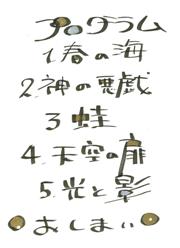 プログラム
1.春の海
2.神の悪戯
3.蛙
4.天空の扉
5.光と影
おしまい